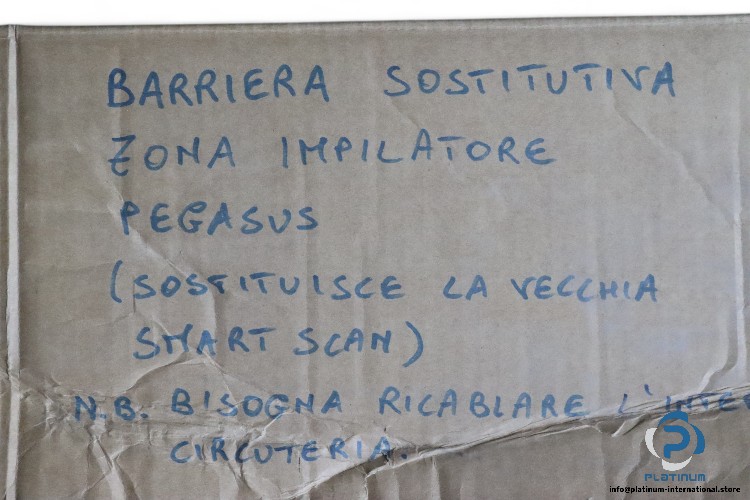 BARRIERA SOSTITUTIVA
ZONA IMPILATORE
PEGASUS
(SOSTITUISCE LA VECCHIA
SMART SCAN)
N.B. BISOGNA RICABLARE L'INTE
CIRCUTERIA.
PLATINUM
info@platinum-international.store